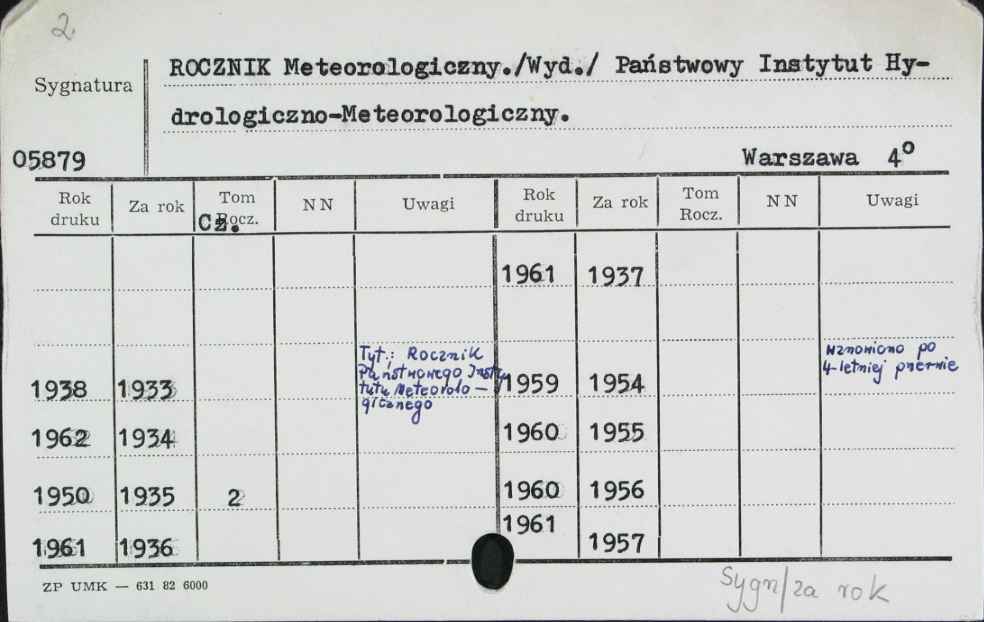 2.
ROCZNIK Meteorologiczny./Wyd./ Państwowy Instytut Hy-
Sygnatura
drologiczno-Meteorologiczny.
05879
Warszawa 4°
Rok druku Za rok Tom Rocz. Cz. NN Uwagi Rok druku Za rok Tom Rocz. NN Uwagi
1961 1937
Tyt.: Rocznik
Państwowego Insty
tutu Meteorolo-
gicznego
wznowiono po
4-letniej przerwie
1938 1933 1959 1954
1962 1934 1960 1955
1950 1935 2 1960 1956
1961 1936 1961 1957
ZP UMK — 631 82 6000
Sygn/za rok